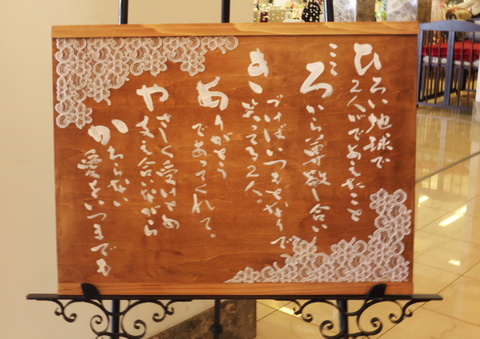 ひろい地球で
2人がであえたこと
こころから尊敬し合い
きづけばいつもとなりで
笑ってる2人。
ありがとう
であってくれて。
やさしく受けとめ
支え合いながら
かわらない
愛をいつまでも